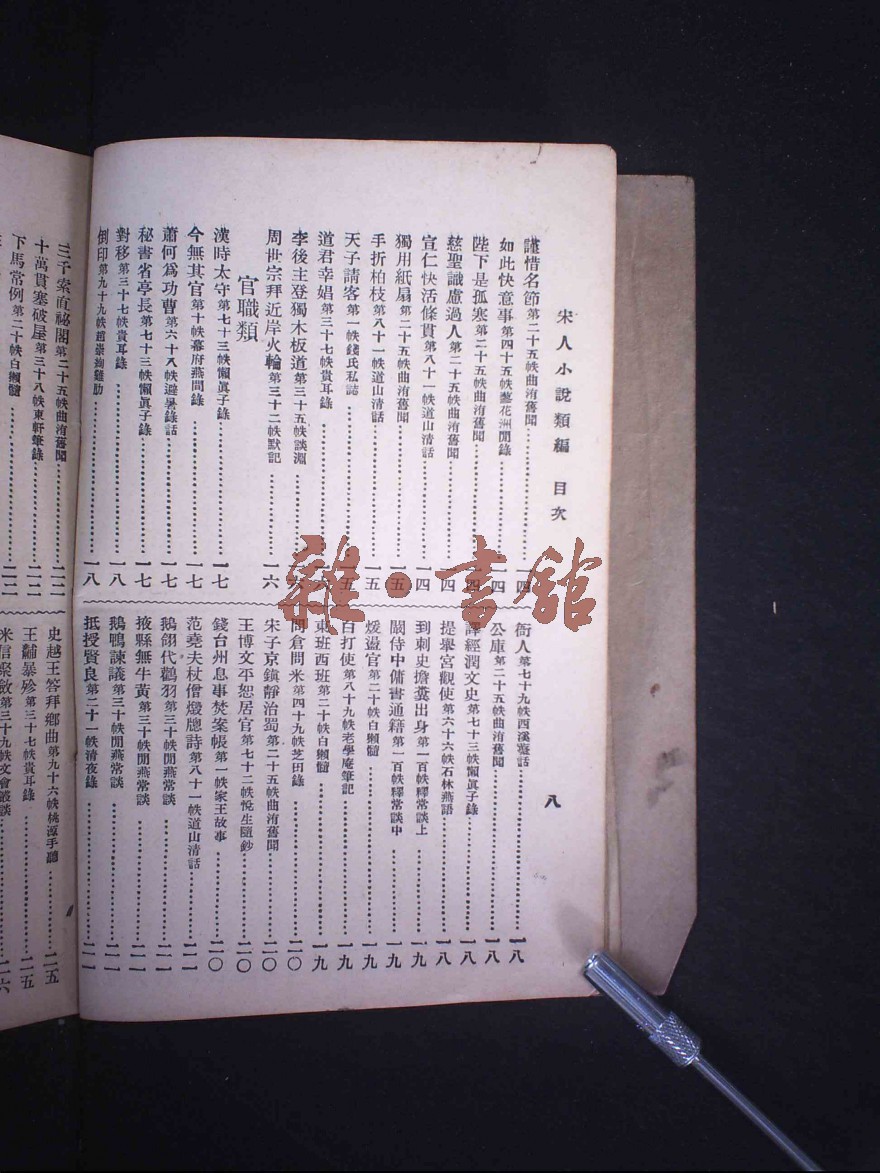 宋人小說類編 目次
八
謹惜名節第二十五帙曲洧舊聞……一四
如此快意事第四十五帙藝花洲閒錄……一四
陛下是孤寒第二十五帙曲洧舊聞……一四
慈聖識慮過人第二十五帙曲洧舊聞……一四
宣仁快活條貫第八十一帙道山清話……一四
獨用紙扇第二十五帙曲洧舊聞……一五
手折柏枝第八十一帙道山清話……一五
天子請客第一帙錢氏私誌……一五
道君幸娼第三十七帙貴耳錄……一六
李後主登獨木板道第三十五帙談淵……一六
周世宗拜近岸火輪第三十二帙默記……一六
官職類
漢時太守第七十三帙懶眞子錄……一七
今無其官第十帙幕府燕閒錄……一七
蕭何爲功曹第六十八帙避暑錄話……一七
秘書省亭長第七十三帙懶眞子錄……一七
對移第三十七帙貴耳錄……一八
倒印第九十九帙趙崇絢雞肋……一八
衙人第七十九帙西溪叢話……一八
公庫第二十五帙曲洧舊聞……一八
譯經潤文史第七十三帙懶眞子錄……一八
提舉宮觀使第六十六帙石林燕語……一八
到刺史擔糞出身第一百帙釋常談上……一九
關侍中傭書通籍第一百帙釋常談中……一九
煖盪官第二十帙白獺髓……一九
白打使第八十九帙老學庵筆記……一九
東班西班第二十帙白獺髓……一九
問倉問米第四十九帙芝田錄……二〇
宋子京鎭靜治蜀第二十五帙曲洧舊聞……二〇
王博文平恕居官第七十二帙悅生隨鈔……二〇
錢台州息事焚案帳第一帙家王故事……二〇
范堯夫杖僧燬牕詩第八十一帙道山清話……二一
鵝翎代鸛羽第三十帙閒燕常談……二一
掖縣無牛黃第三十帙閒燕常談……二一
鵝鴨諫議第三十帙閒燕常談……二一
抵授賢良第二十一帙清夜錄……二一
三千索直祕閣第二十五帙曲洧舊聞……二二
十萬貫塞破屋第三十八帙東軒筆錄……二二
下馬常例第二十帙白獺髓……二二
史越王答拜鄉曲第九十六帙桃源手聽……二五
王黼暴殄第三十七帙貴耳錄……二五
米信聚斂第三十九帙文會叢談……二六
雜·書館